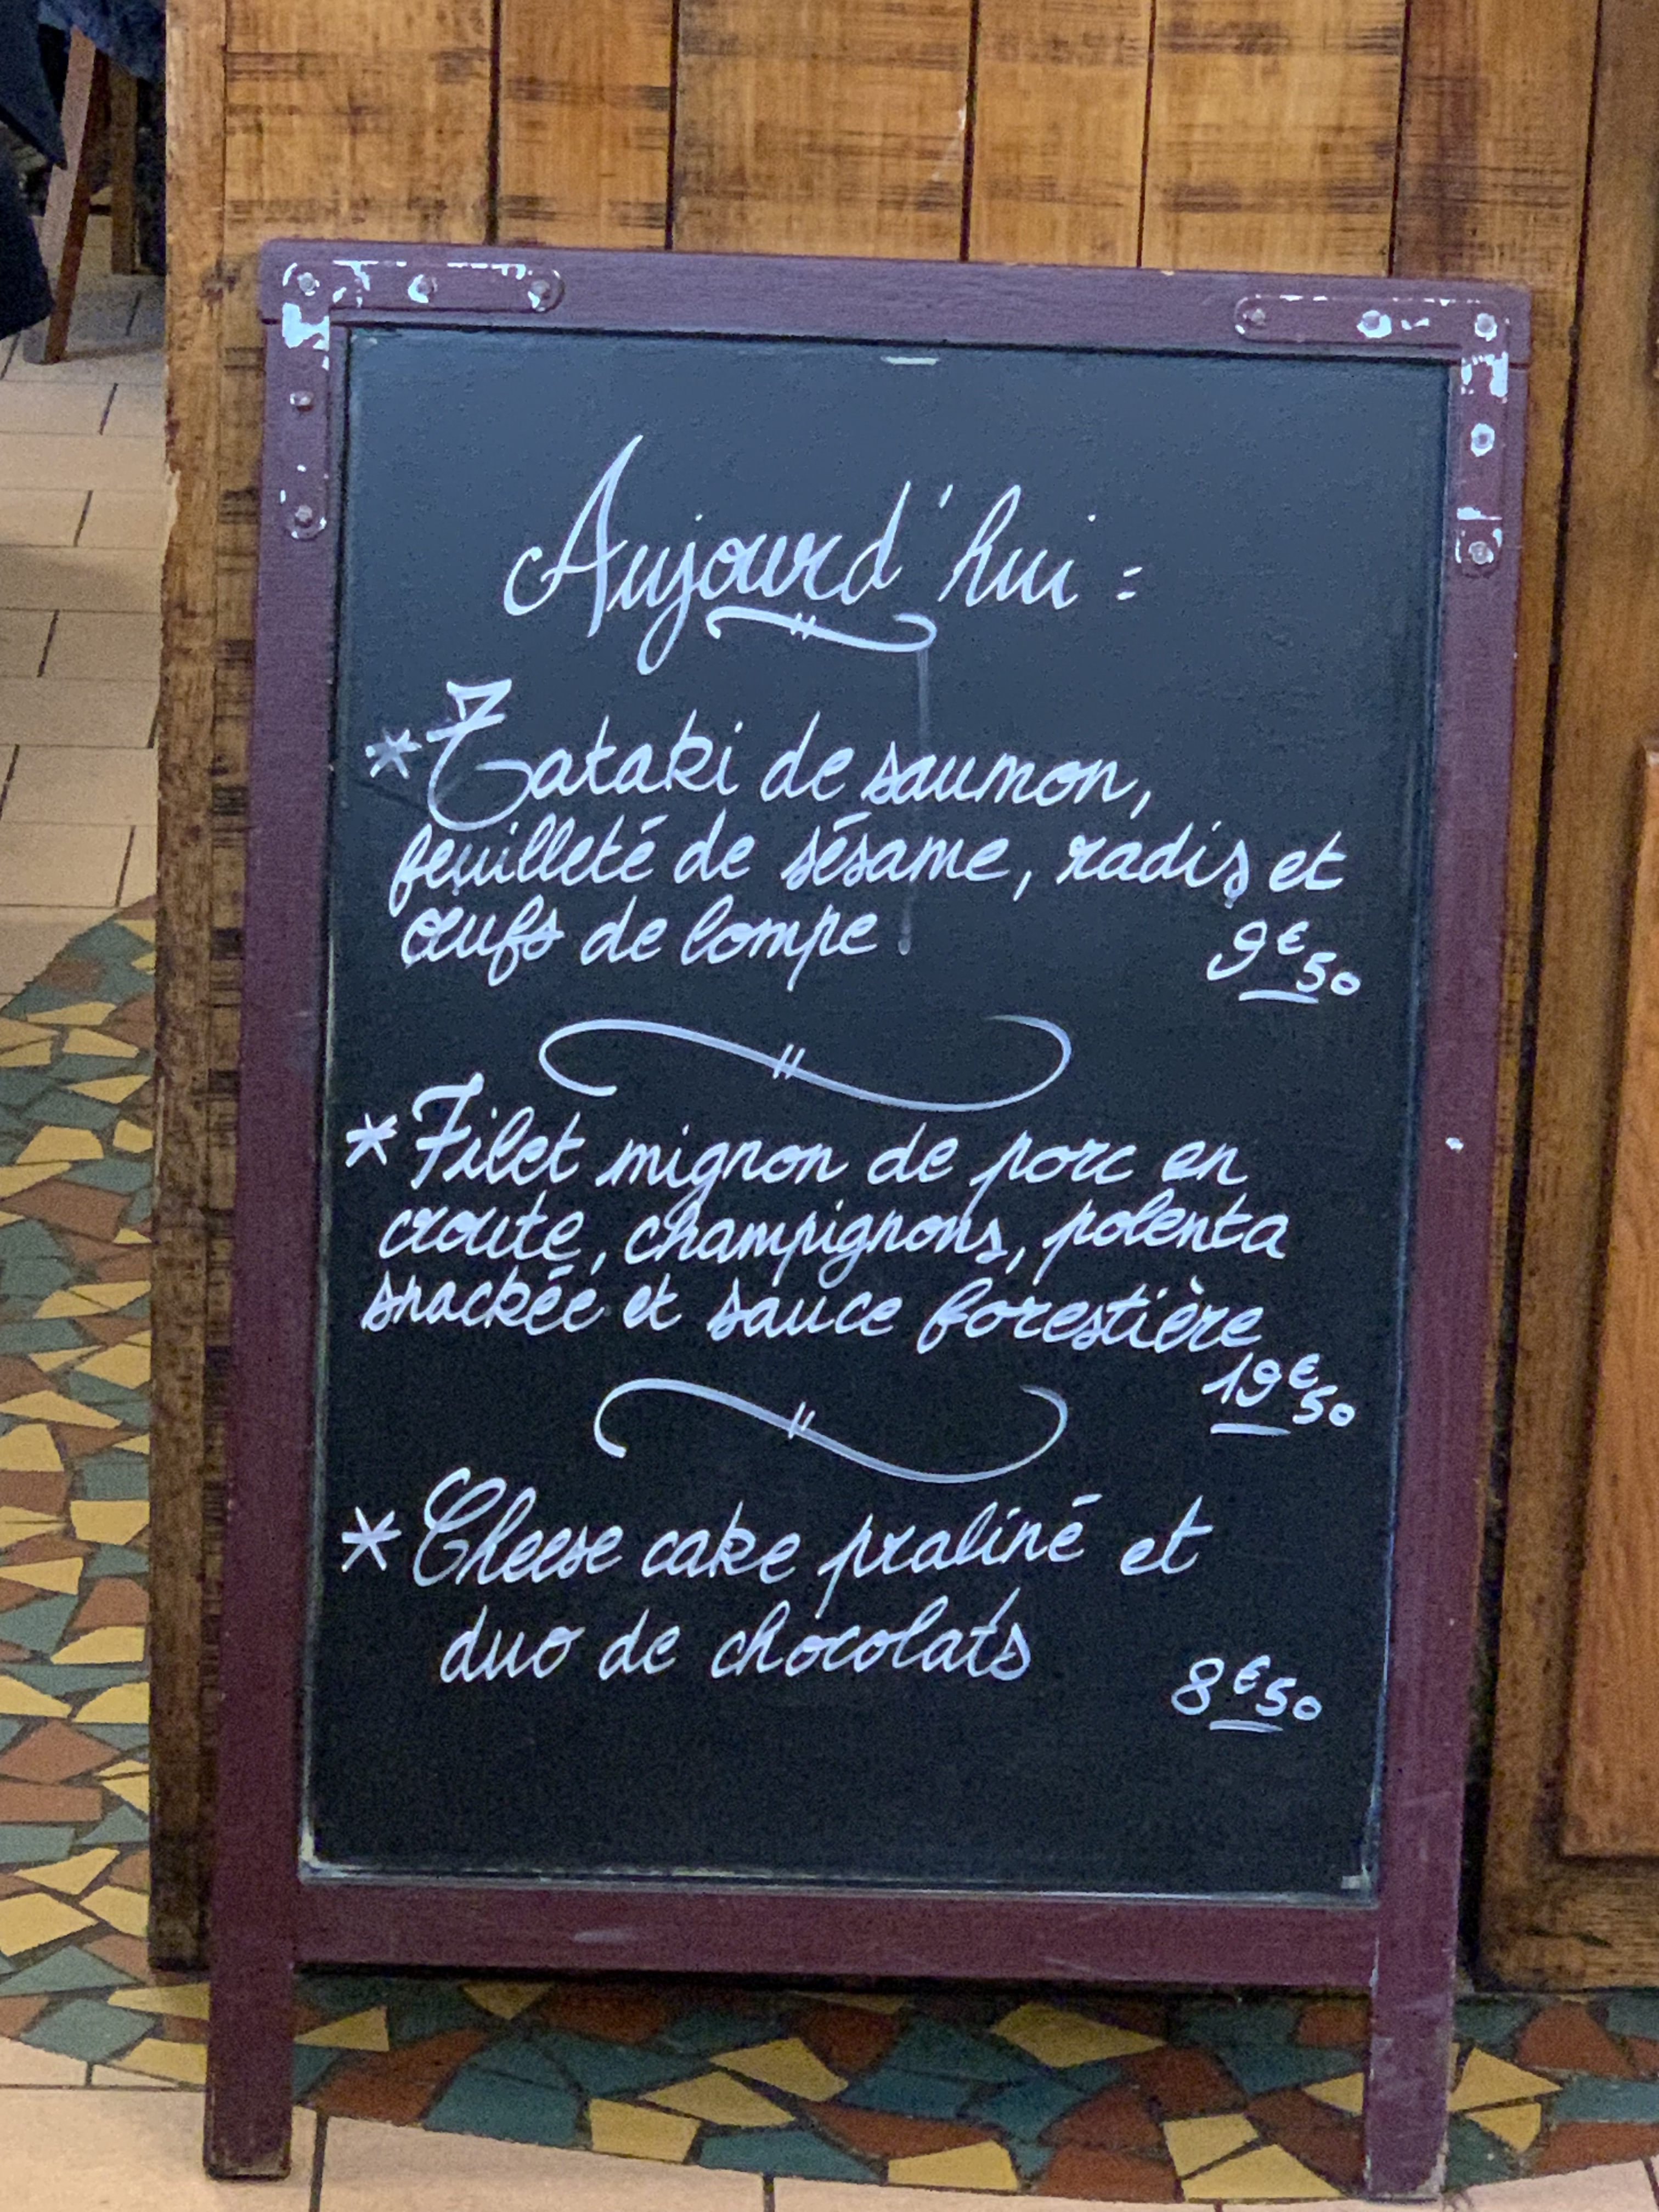 Aujourd'hui :
* Tataki de saumon,
feuilleté de sésame, radis et
œufs de lompe
9€50
* Filet mignon de porc en
croute, champignons, polenta
snackée et sauce forestière
19€50
* Cheese cake praliné et
duo de chocolats
8€50